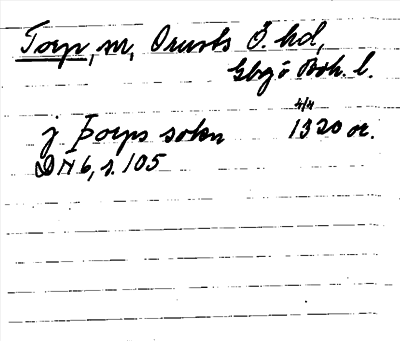 Torp, m, Orusts Ö. hd,
Gbg ò Boh. l.
4/4
j Þorps sokn 1320 or.
DN 6, s. 105